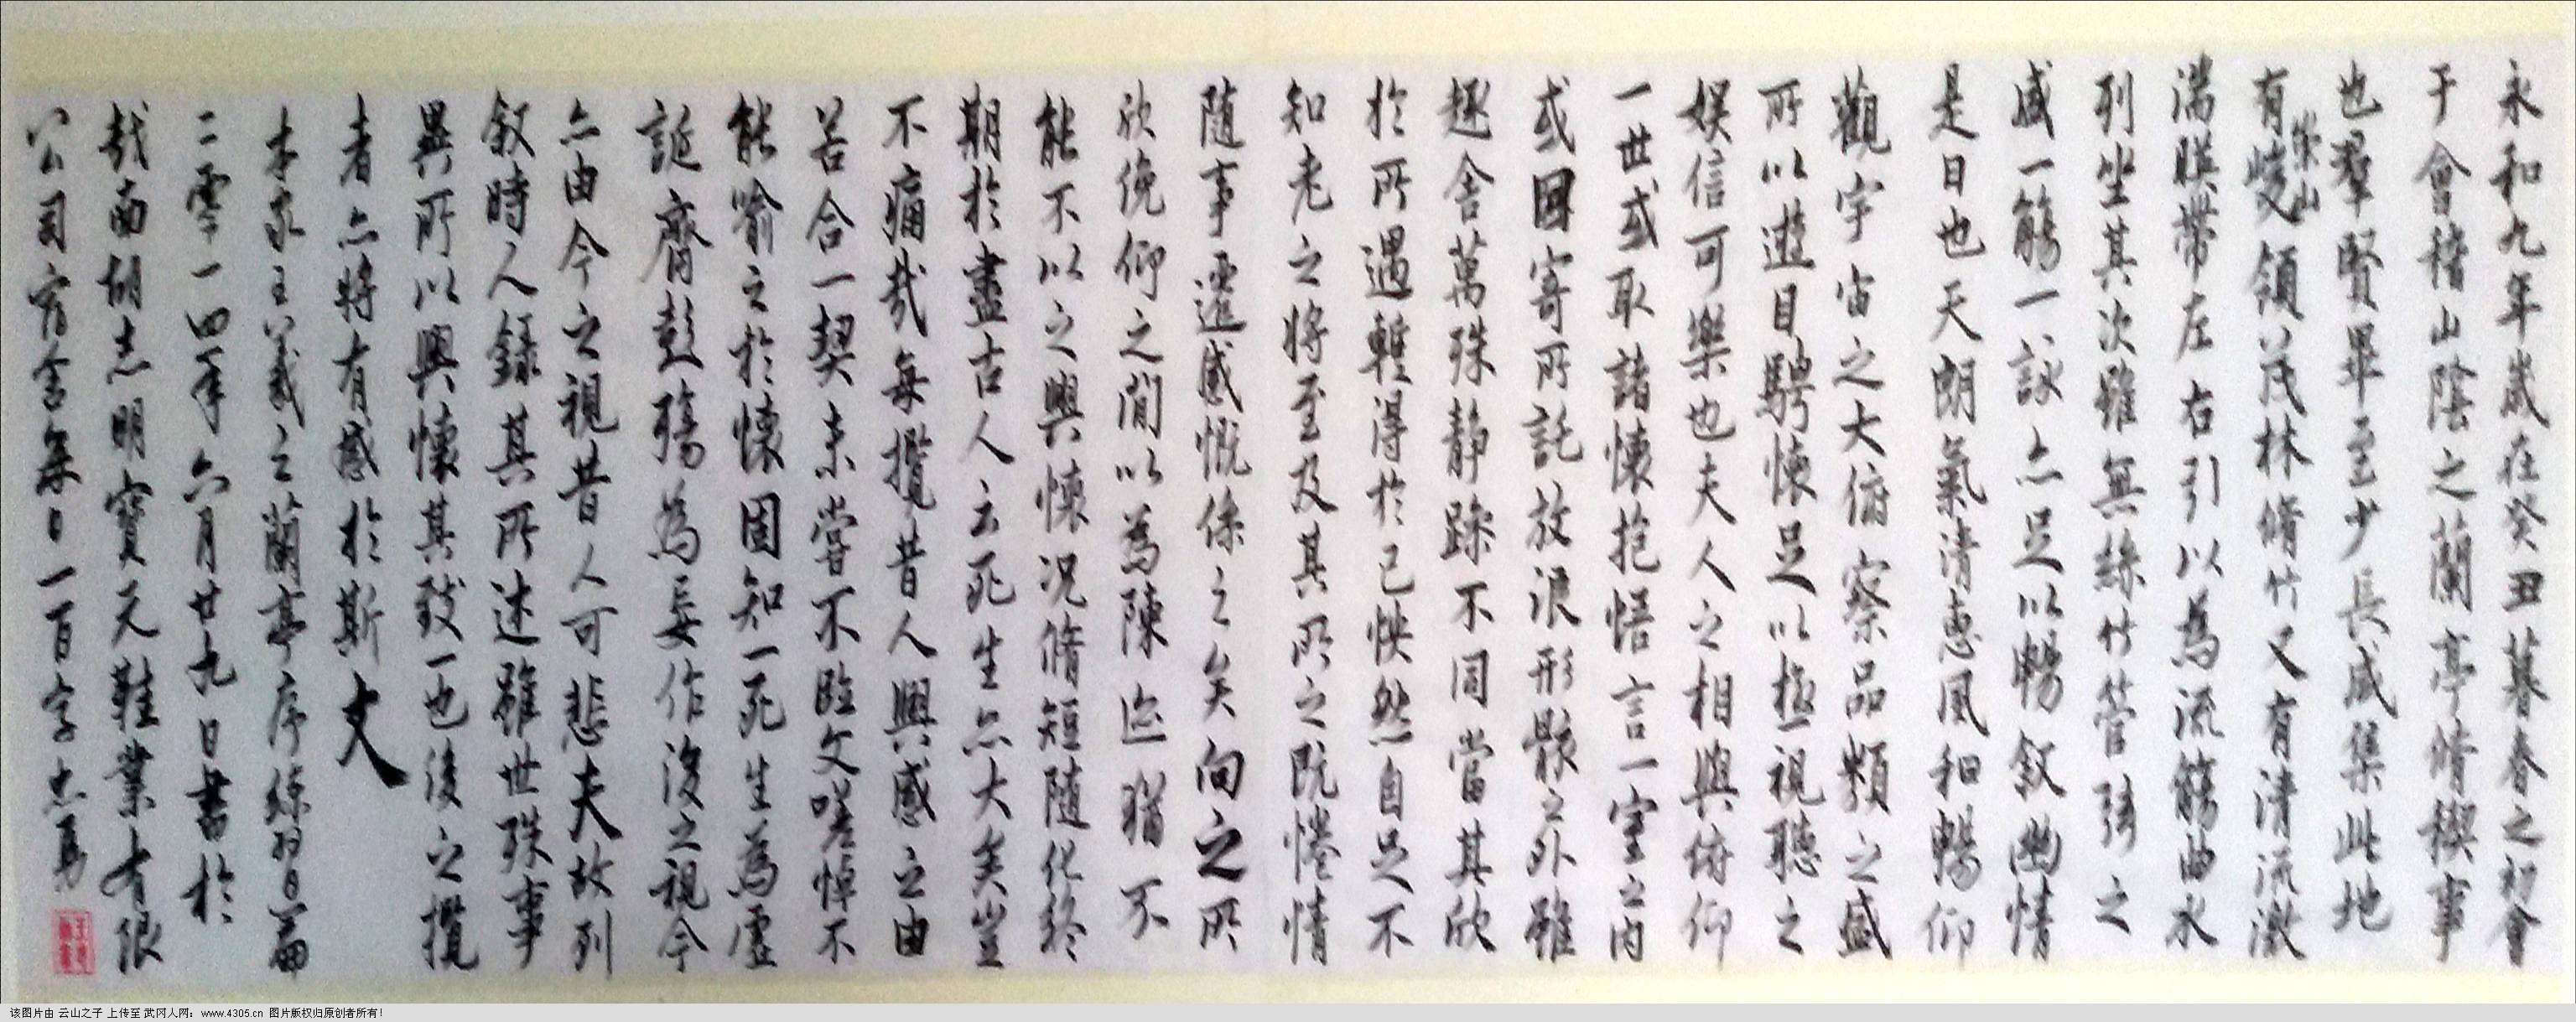 永和九年歲在癸丑暮春之初會
于會稽山陰之蘭亭脩稧事
也羣賢畢至少長咸集此地
有崇山峻領茂林脩竹又有清流激
湍暎帶左右引以為流觴曲水
列坐其次雖無絲竹管弦之
盛一觴一詠亦足以暢敘幽情
是日也天朗氣清惠風和暢仰
觀宇宙之大俯察品類之盛
所以遊目騁懷足以極視聽之
娛信可樂也夫人之相與俯仰
一世或取諸懷抱悟言一室之內
或因寄所託放浪形骸之外雖
趣舍萬殊靜躁不同當其欣
於所遇暫得於己怏然自足不
知老之將至及其所之既惓情
隨事遷感慨係之矣向之所
欣俛仰之閒以為陳迹猶不
能不以之興懷況脩短隨化終
期於盡古人云死生亦大矣豈
不痛哉每攬昔人興感之由
若合一契未嘗不臨文嗟悼不
能喻之於懷固知一死生為虛
誕齊彭殤為妄作後之視今
亦由今之視昔人可悲夫故列
敘時人錄其所述雖世殊事
異所以興懷其致一也後之攬
者亦將有感於斯文
本家王羲之蘭亭序練習篇
二零一四年六月廿九日書於
越南胡志明寶元鞋業有限
公司宿舍每日一百字
该图片由 云山之子 上传至 武冈人网：www.4305.cn 图片版权归原创者所有！